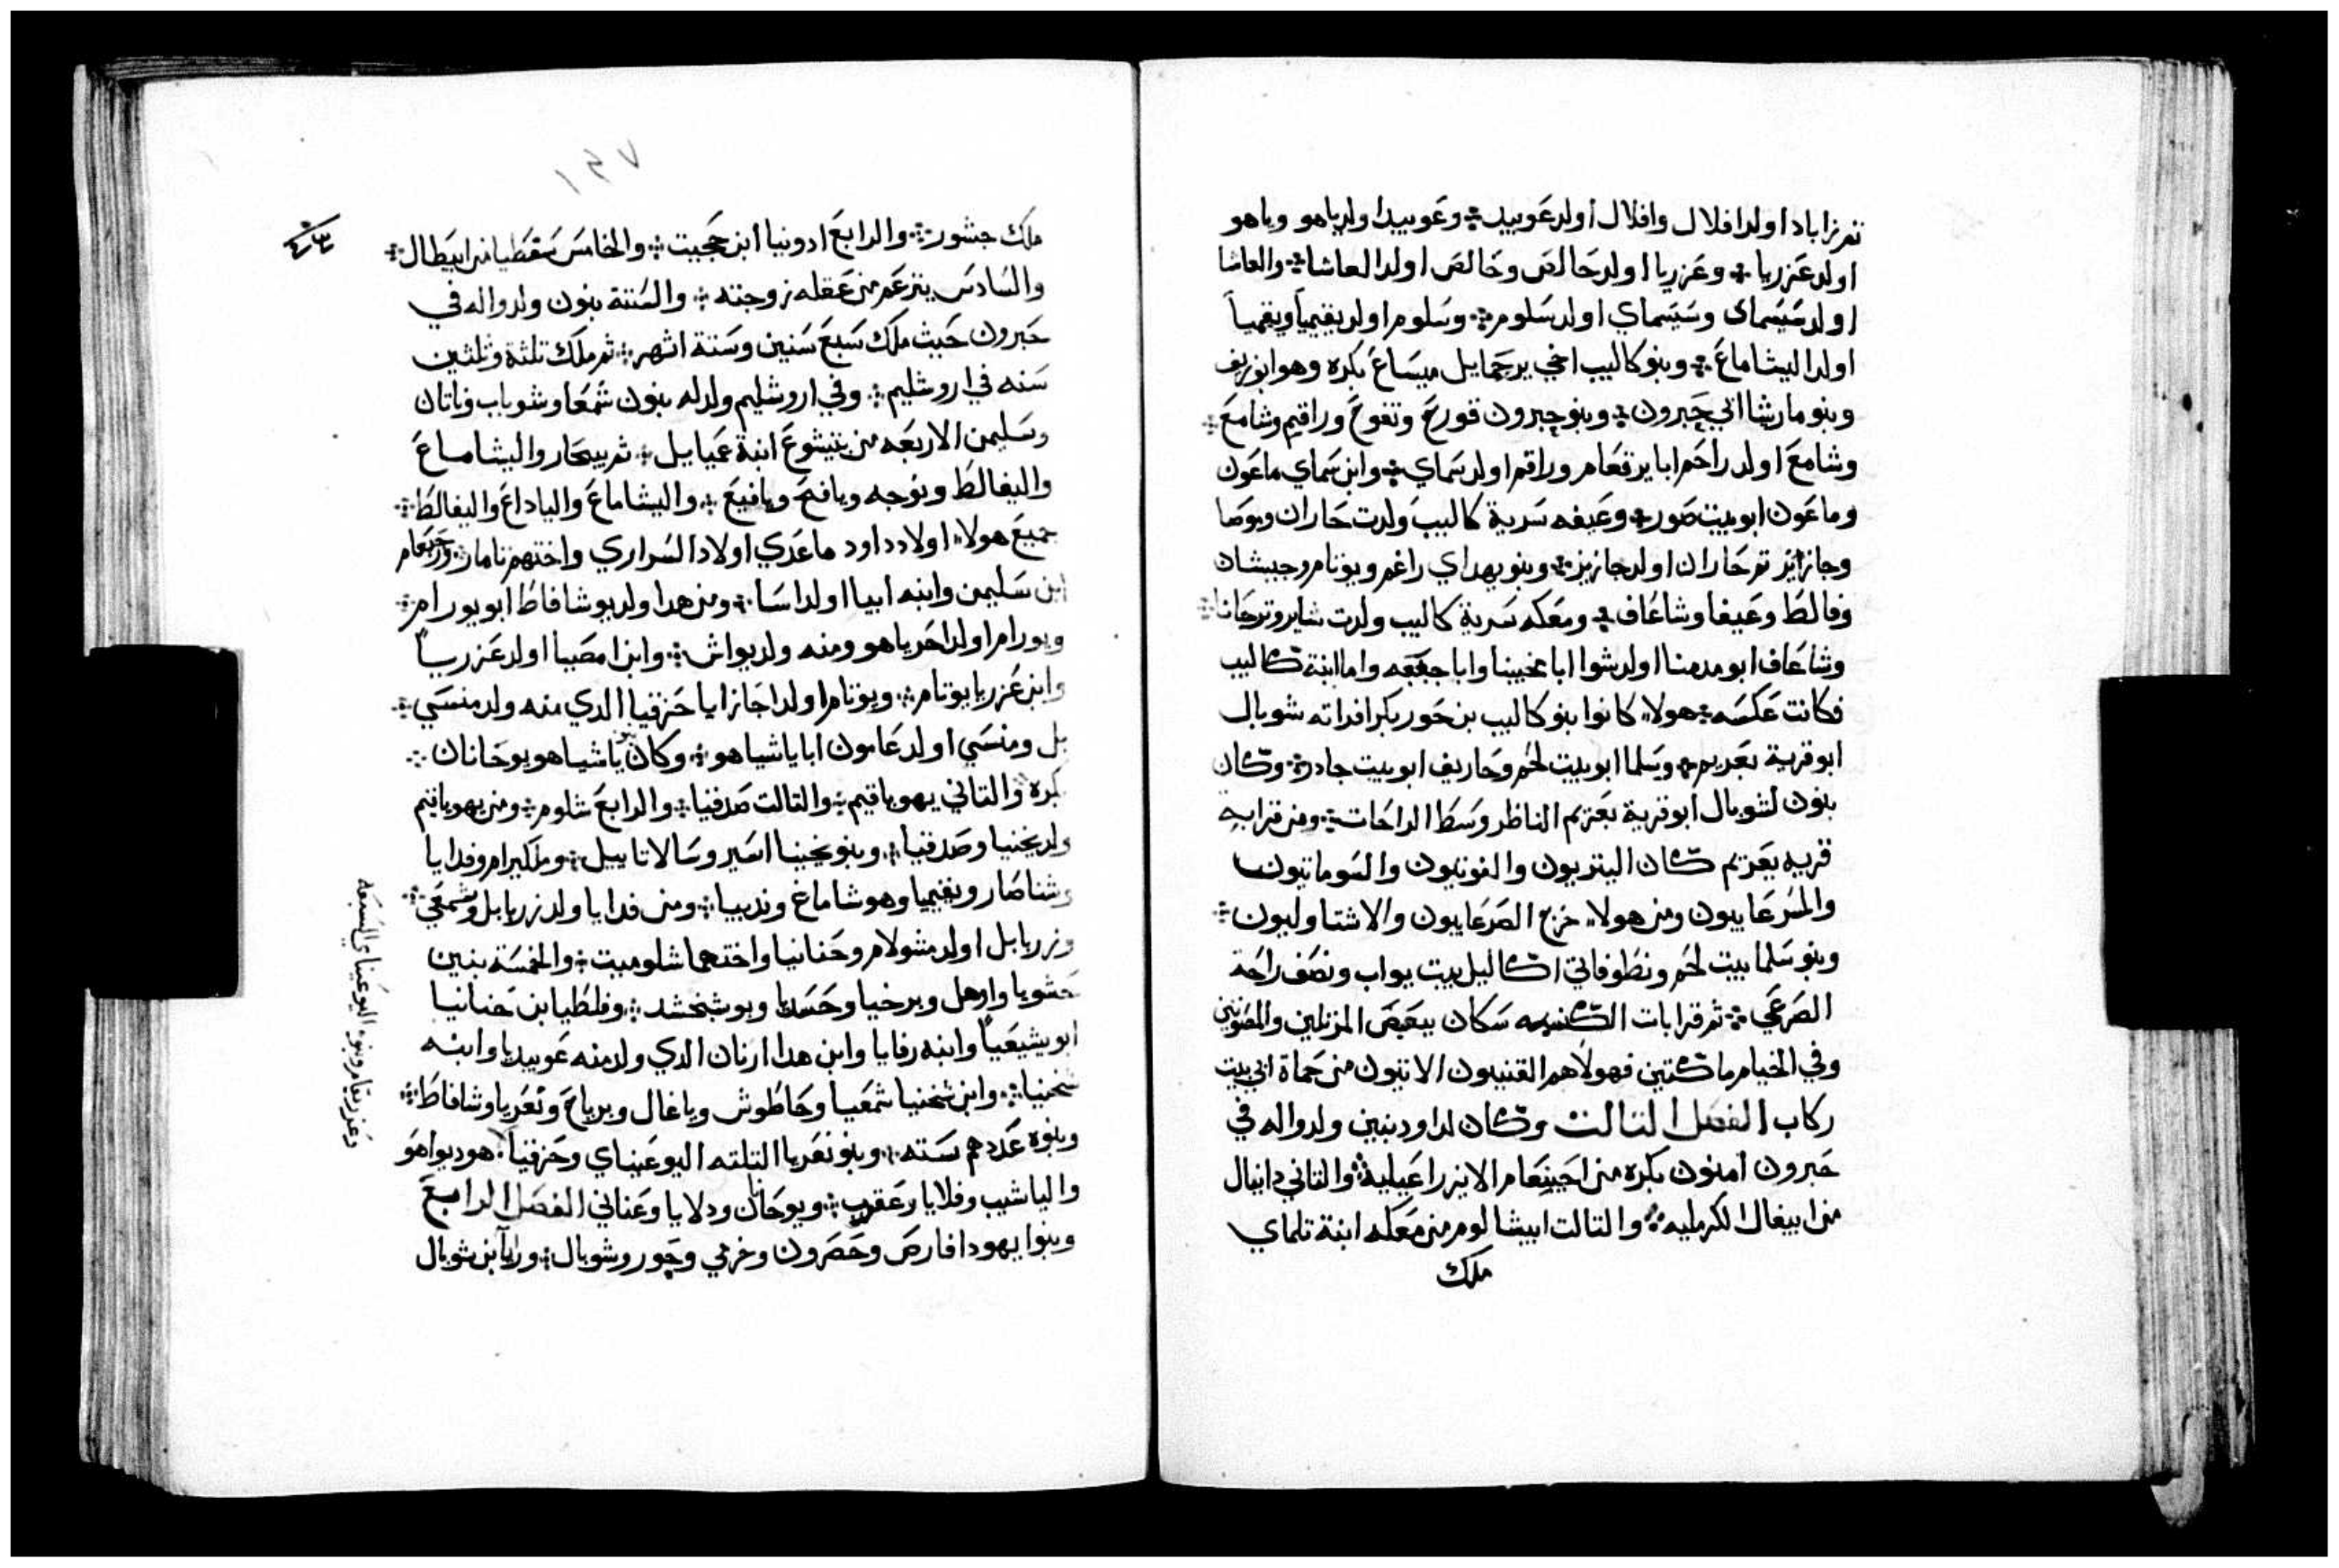 ثم زاباد اولد افلال وافلال اولد عوبيد ܀ وعوبيد اولد ياهو وياهو
اولد عزريا ܀ وعزريا اولد حالص وحالص اولد العاشا ܀ والعاشا
اولد سَيسَماى وسَيسَماي اولد سَلوم ܀ وسَلوم اولد يقيميا ويقميا
اولد اليشاماعَ ܀ وبنو كاليب اخي يرحمايل ميسَاعَ بكره وهو ابو زيف
وبنو ماريشا ابي حَبرون ܀ وبنو حبرون قورح وتفوح وراقيم وشامعَ ܀
وشامعَ اولد راحَم ابا يرقعَام وراقم اولد سَماي ܀ وابن سَماي ماعَون
وماعَون ابو بيت صَور ܀ وعَيفه سَرية كاليب ولدت حَاران وموصَا
وجازايز ثم حَاران اولد جازيز ܀ وبنو يهداي راغم ويوتام وجيشان
وفالط وعَيفا وشاعَاف ܀ ومعَكه سَرية كاليب ولدت شابر وترحَانا ܀
وشاعَاف ابو مدمنا اولد شوا ابا مخبينا وابا جعَبعَه واما ابنة كاليب
فكانت عَكسَه ܀ هولاء كانوا بنو كاليب بن حَور بكر افراته شوبال
ابو قرية يعَريم ܀ وسَلما ابو بيت لحَم وحَاريف ابو بيت جادر ܀ وكان
بنون لشوبال ابو قرية يعَريم الناظر وسَط الراحَات ܀ ومن قرابة
قريه يعَريم كان اليتريون والفوتيون والسَوماتيون
والمسَرعَاييون ومن هولاء خرج الصَرعَاييون والاشتاوليون ܀
وبنو سَلما بيت لحَم ونطوفاتي اكاليل بيت يواب ونصَف راحَة
الصَرعَي ܀ ثم قرابات الكتبه سَكان يبعَيصَ المرتلين والمصَوتين
وفي الخيام ماكتين فهولاء هم القنييون الاتيون من حَماة ابي بيت
ركاب الفصَل التالت وكان لداود بنين ولدوا له في
حَبرون امنون بكره من احَينعَام الايزراعَيلية ܀ والتاني دانيال
من ابيغال الكرمليه ܀ والتالت ابيشالوم من معَكه ابنة تلماي
ملك
١٣٧
ملك جشور ܀ والرابعَ ادونيا ابن حَجيت ܀ والخامسَ سَفطيا من ابيطال ܀
والسَادسَ يترعَم من عَقله زوجته ܀ والسَتة بنون ولدوا له في
حَبرون حَيث ملك سَبعَ سَنين وسَتة اشهر ܀ ثم ملك تلتة وتلتين
سَنه في اروشليم ܀ وفي اروشليم ولد له بنون شمعَا وشوباب وناتان
وسَليمن الاربعَه من بتشوعَ ابنة عَميايل ܀ ثم يبحَار واليشاماعَ
واليفالط ونوجه ونافج ويافيعَ ܀ واليشاماعَ والياداعَ واليفالط ܀
جميعَ هولاء اولاد داود ماعَدي اولاد السَراري واختهم تامار ܀ ورحَبعَام
ابن سَليمن وابنه ابيا اولد اسَا ܀ ومن هدا ولد يوشافاط ابو يورام ܀
ويورام اولد احَزياهو ومنه ولد يواش ܀ وابن امصَيا اولد عَزريا
وابن عَزريا يوتام ܀ ويوتام اولد احَاز ابا حَزقيا الدي منه ولد منسَي ܀
بل ومنسَي اولد عَامون ابا ياشياهو ܀ وكان بنو ياشياهو يوحَانان
بكره والتاني يهوياقيم ܀ والتالت صَدقيا ܀ والرابعَ شلوم ܀ ومن يهوياقيم
ولد يخنيا وصَدقيا ܀ وبنو يخينا اسَير وسَالاتاييل ܀ وملكيرام وفدايا
وشناصَار ويقيميا وهوشاماعَ وندبيا ܀ ومن فدايا ولد زربابل وشمعَي ܀
وزربابل اولد مشولام وحَنانيا واختهما شلوميت ܀ والخمسَة بنين
حَشوبا واوهل وبرخيا وحَسَديا ويوشبخشد ܀ وفلطيا بن حَنانيا
ابو يشيعَيا وابنه رفايا وابن هدا ارنان الدي ولد منه عَوبيديا وابنه
شخنيا ܀ وابن شخنيا شمعَيا وحَاطوش وياغال وبرياحَ ونعَريا وشافاط ܀
وبنوه عَددهم سَته ܀ وبنو نعَريا التلته اليوعَيناي وحَزقيا
وعَزريقام وبنو اليوعَيناي السَبعَه
هوديواهو
والياشيب وفلايا وعَقوب ܀ ويوحَانان ودلايا وعَناني الفصَل الرابعَ
وبنوا يهودا فارصَ وحَصَرون وخرمي وحَور وشوبال ܀ ورايا بن شوبال